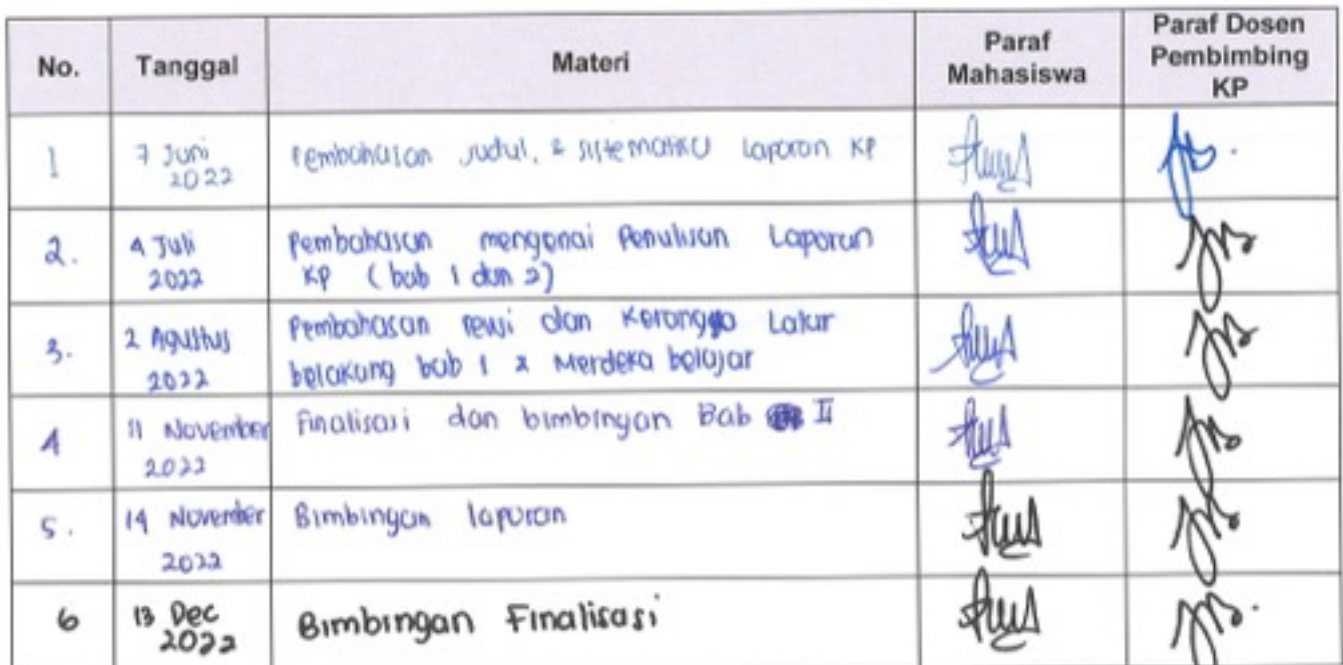 No. Tanggal Materi Paraf Mahasiswa Paraf Dosen Pembimbing KP
1 7 Juni 2022 Pembahasan Judul, & sistematika Laporan KP
2. 4 Juli 2022 Pembahasan mengenai Penulisan Laporan
KP (bab 1 dan 2)
3. 2 Agustus 2022 Pembahasan dan Kerangga Latar
belakang bab 1 & Merdeka belajar
4 11 November 2022 Finalisasi dan bimbingan Bab II
5. 14 November 2022 Bimbingan laporan
6 13 Dec 2022 Bimbingan Finalisasi